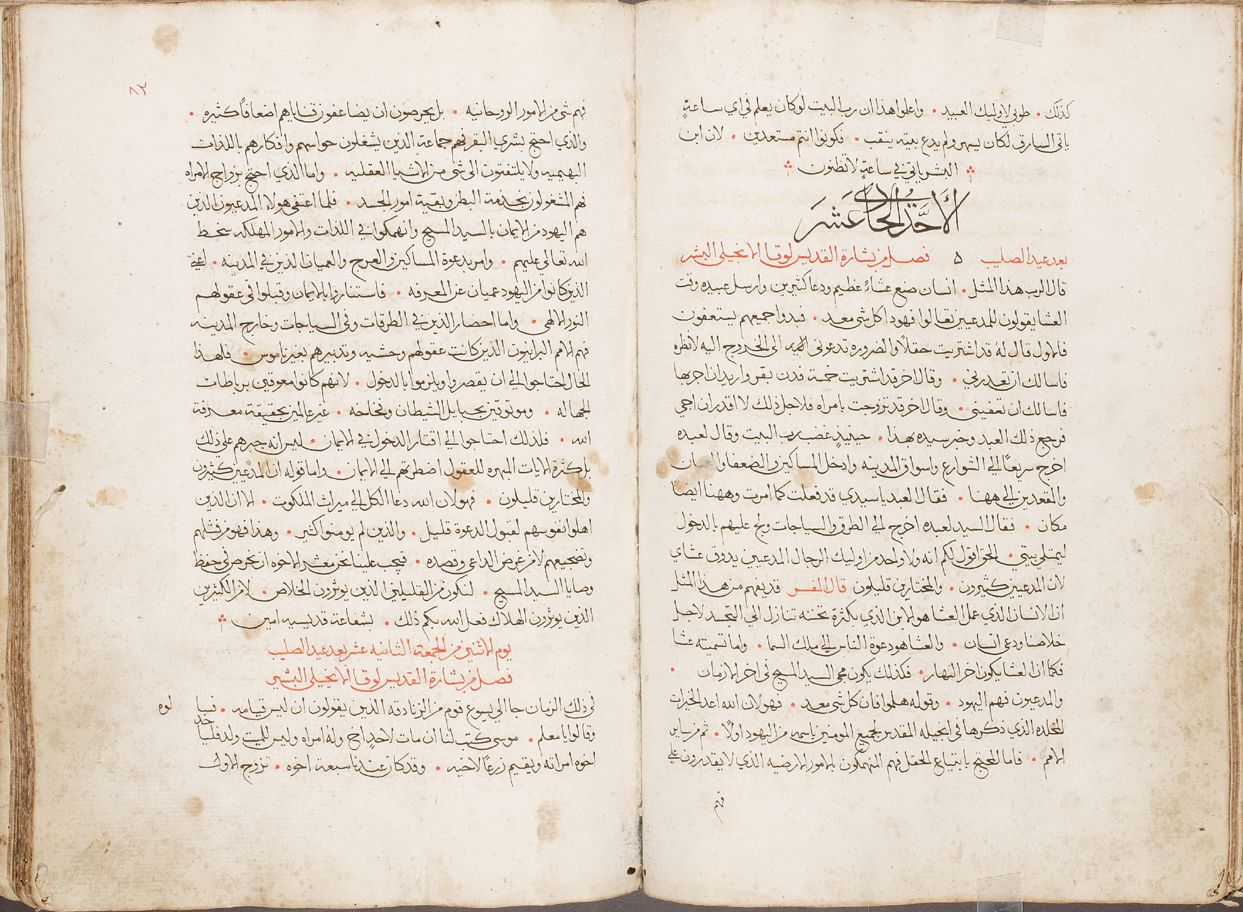 كذلك • طوبى لاوليك العبيد • واعلموا هذا ان رب البيت لو كان يعلم في اي ساعة
ياتي السارق لكان يسهر ولم يدع بيته ينقب • فكونوا انتم مستعدين • لان ابن
البشر ياتي في ساعة لا تظنون
الأحد الحادي عشر
بعد عيد الصليب ه فصل من بشارة القديس لوقا الانجيلي البشير
قال الرب هذا المثل • انسان صنع عشاءً عظيم ودعا كثيرين وارسل عبيده وقت
العشا يقولون للمدعيين تعالوا فهوذا كل شي معد • فبدوا جميعهم يستعفون
فالاول قال له قد اشتريت حقلاً والضرورة تدعوني الى الخروج اليه لانظره
فاسالك ان تعذرني • وقال اخر قد اشتريت خمسة فدن بقر واريد ان اجربها
فاسالك ان تعفيني • وقال اخر قد تزوجت بامراه فلاجل ذلك لا اقدر ان اجي
فرجع ذلك العبد وخبر سيده بهذا • حينيذٍ غضب رب البيت وقال لعبده
اخرج سريعاً الى الشوارع واسواق المدينه وادخل المساكين الضعفا والعميان
والمقعدين الى ههنا • فقال العبد ياسيدي قد فعلت كما امرت وههنا ايضا
مكان • فقال السيد لعبده اخرج الى الطرق والسياجات ولج عليهم بالدخول
ليمتلي بيتي • الحق اقول لكم انه ولا واحد من اوليك الرجال المدعيين يذوق عشاي
لان المدعيين كثيرون • والمختارين قليلون قال المفسر قد يفهم من هذا المثل
ان الانسان الذي عمل العشا هو الابن الذي بكثرة تحننه تنازل الى التجسد لاجل
خلاصنا ودعى انسان • والعشا هو دعوة الناس الى ملك السما • واما تسميته عشا
فكما ان العشا يكون اخر النهار • فكذلك يكون مجي السيد المسيح في اخر الازمان •
والمدعيون فهم اليهود • وقوله هلموا فان كل شي معد • فهو لان الله اعد الخيرات
المخلده الذي ذكرها في انجيله المقدس لجميع المومنين باسمه من اليهود اولاً • ثم من ساير
الامم • فاما المحتج بابتياع الحقل فهم المنهمكون بالامور الارضيه الذي لا يقدرون على
فهم
٨٢
فهم شي من الامور الروحانيه • بل يحرصون ان يضاعفوا قناياهم اضعافاً كثيره •
والذي احتج بشرى البقر فهم جماعة الذين يشغلون حواسهم وافكارهم باللذات
البهيميه ولا يلتفتون الى شي من الاشيا العقليه • واما الذي احتج بزواج الامراه
فهم المشغولون بخدمة البطن وبقية امور الجسد • فلما اعتفى هولا المدعيون الذين
هم اليهود من الايمان بالسيد المسيح وانهمكوا في اللذات والامور المهلكه سخط
الله تعالى عليهم • وامر بدعوة المساكين والعرج والعميان الذين في المدينه • اعني
الذين كانوا من اليهود عميان عن المعرفه • فاستناروا بالايمان وقبلوا في عقولهم
النور الالهي • واما احضار الذين في الطرقات وفي السياجات وخارج المدينه
فهم الامم البرانيون الذين كانت عقولهم وحشيه وتدبيرهم بغير ناموس • فلهذا
الحال احتاجوا الى ان يقصروا ويلزموا بالدخول • لانهم كانوا معوقين برباطات
الجهاله • وموثوقين بحبايل الشيطان وفخاخه • غير عالمين بحقيقة معرفة
الله • فلذلك احتاجوا الى اقتسار الدخول في الايمان • ليس انه جبرهم على ذلك
بل كثرة الايات المبهره للعقول اضطرتهم الى الايمان • واما قوله ان المدعيين كثيرون
والمختارين قليلون • فهو لان الله دعا الكل الى ميراث الملكوت • الا ان الذين
اهلوا نفوسهم لقبول الدعوة قليل • والذين لم يومنوا اكثر • وهذا فهو من فشلهم
وتضجيعهم لا من غرض الداعي وقصده • فيجب علينا نحن معشر الاخوه ان نحرص في حفظ
وصايا السيد المسيح • لنكون من القليلين الذين يوثرون الخلاص • لا من الكثيرين
الذين يوثرون الهلاك فعل الله بكم ذلك • بشفاعة قديسيه امين
يوم الاثنين من الجمعة الثانيه عشر بعد عيد الصليب
فصل من بشارة القديس لوقا الانجيلي البشير
في ذلك الزمان جا الى يسوع قوم من الزنادقه الذين يقولون ان ليس قيامه •
وقالوا يا معلم • موسى كتب لنا ان مات لاحدٍ اخ وله امراه وليس للميت ولد فلياخذ
اخوه امراته ويقيم زرعاً لاخيه • وقد كان عندنا سبعة اخوه • تزوج الاول